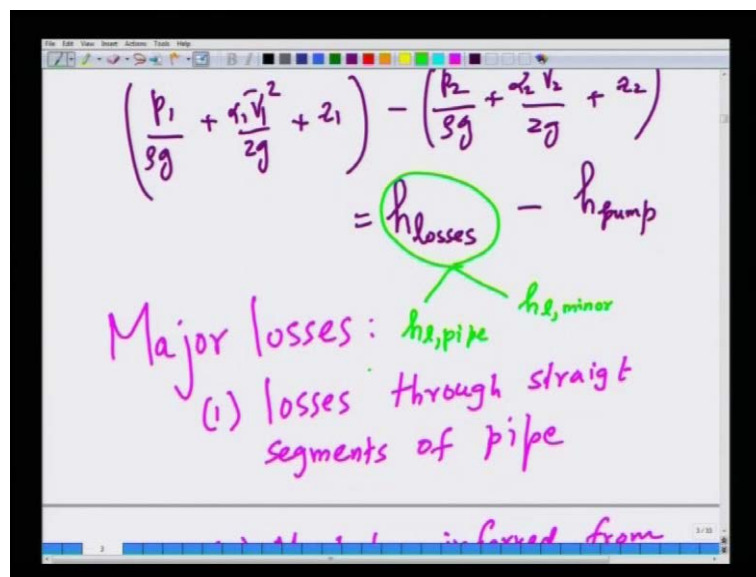 File Edit View Insert Actions Tools Help
(p₁/ρg + α₁V̄₁²/2g + z₁) − (p₂/ρg + α₂V̄₂²/2g + z₂)
= h_losses − h_pump
h_l,pipe h_l,minor
Major losses:
(1) losses through straigt
segments of pipe
inferred from
3/30
2